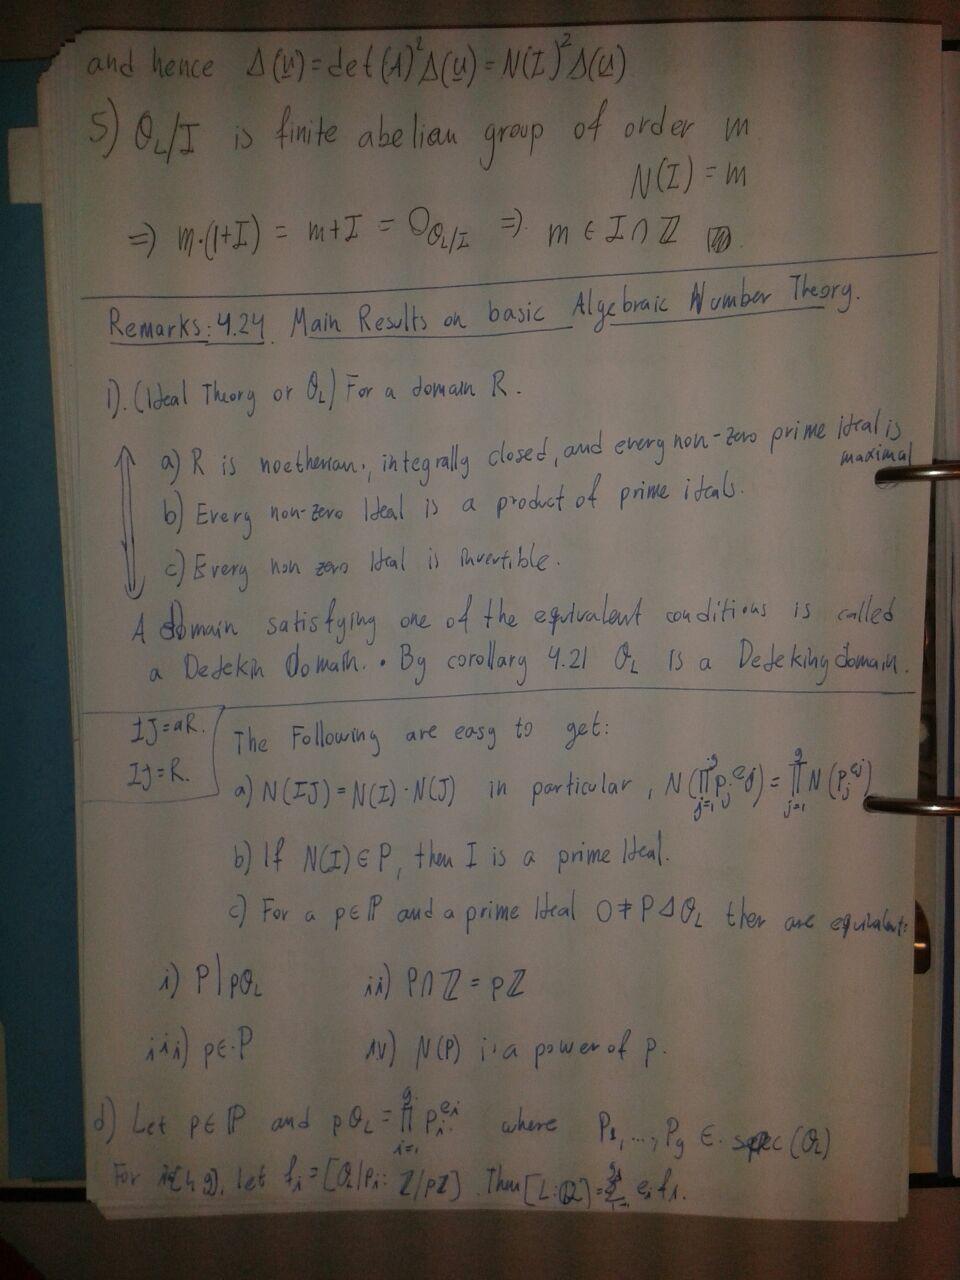 and hence Δ(v) = det(A)² Δ(u) = N(I)² Δ(u)
5) O_L/I is finite abelian group of order m
N(I) = m
⇒ m·(1+I) = m+I = O_{O_L/I} ⇒. m ∈ I∩ℤ
Remarks: 4.24. Main Results on basic Algebraic Number Theory.
1). (Ideal Theory or O_L) For a domain R.
a) R is noetherian, integrally closed, and every non-zero prime ideal is
maximal
b) Every non-zero Ideal is a product of prime ideals.
c) Every non zero Ideal is invertible.
A domain satisfying one of the equivalent conditions is called
a Dedekin domain. • By corollary 4.21 O_L is a Dedeking domain.
IJ = aR.
IJ = R.
The Following are easy to get:
a) N(IJ) = N(I)·N(J) in particular, N(∏_{j=1}^g P_j^{e_j}) = ∏_{j=1}^g N(P_j^{e_j})
b) If N(I) ∈ P, then I is a prime Ideal.
c) For a p∈ℙ and a prime Ideal 0 ≠ P ⊲ O_L ther are equivalent:
i) P | pO_L ii) P∩ℤ = pℤ
iii) p∈P iv) N(P) is a power of p.
d) Let p∈ℙ and pO_L = ∏_{i=1}^g P_i^{e_i} where P_1, ..., P_g ∈ spec(O_L)
For let f_i = [O_L/P_i : ℤ/pℤ]. Then [L:ℚ] = ∑ e_i f_i.